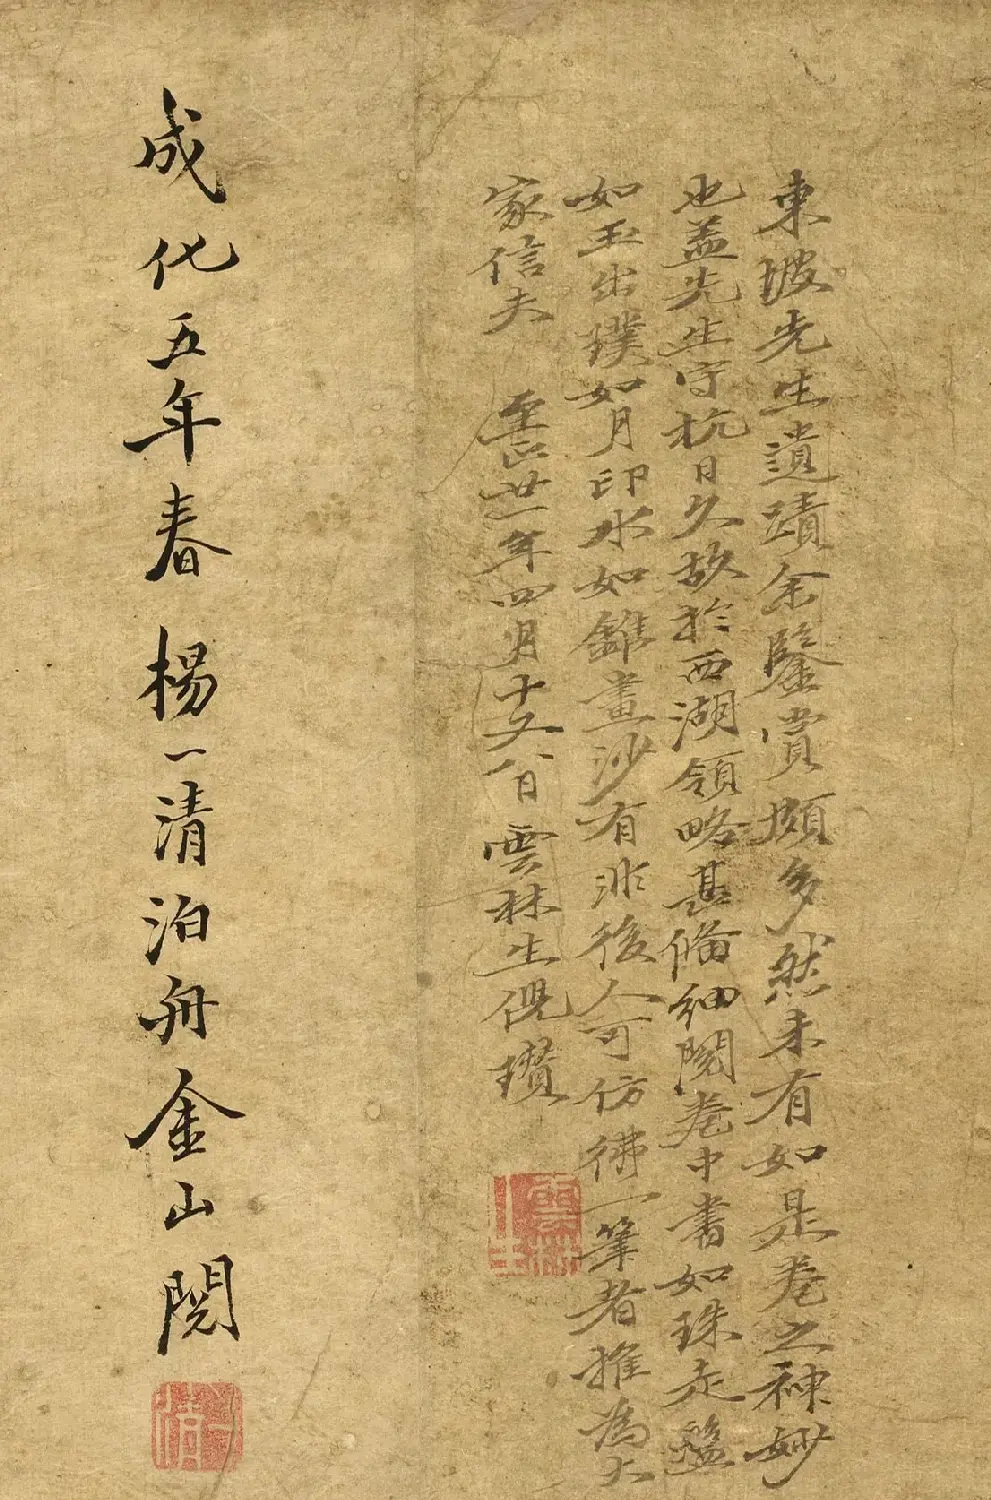 東坡先生遺蹟余鑒賞頗多然未有如是卷之神妙
也蓋先生守杭日久故於西湖領略甚備細閱卷中書如珠走盤
如玉出璞如月印水如錐畫沙有非後人可仿彿一筆者推為大
家信夫 至正廿一年四月十又八日雲林生倪瓚
雲林
生
成化五年春楊一清泊舟金山閱